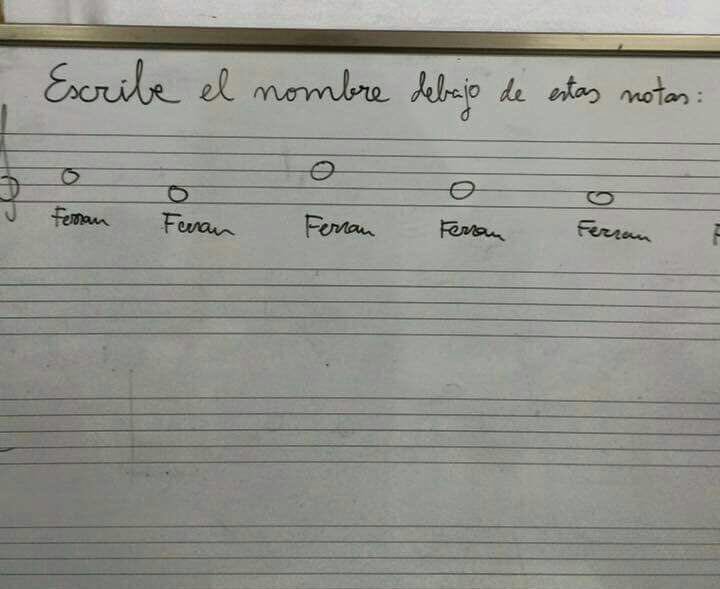 Escribe el nombre debajo de estas notas:
Ferran Ferran Ferran Ferran Ferran